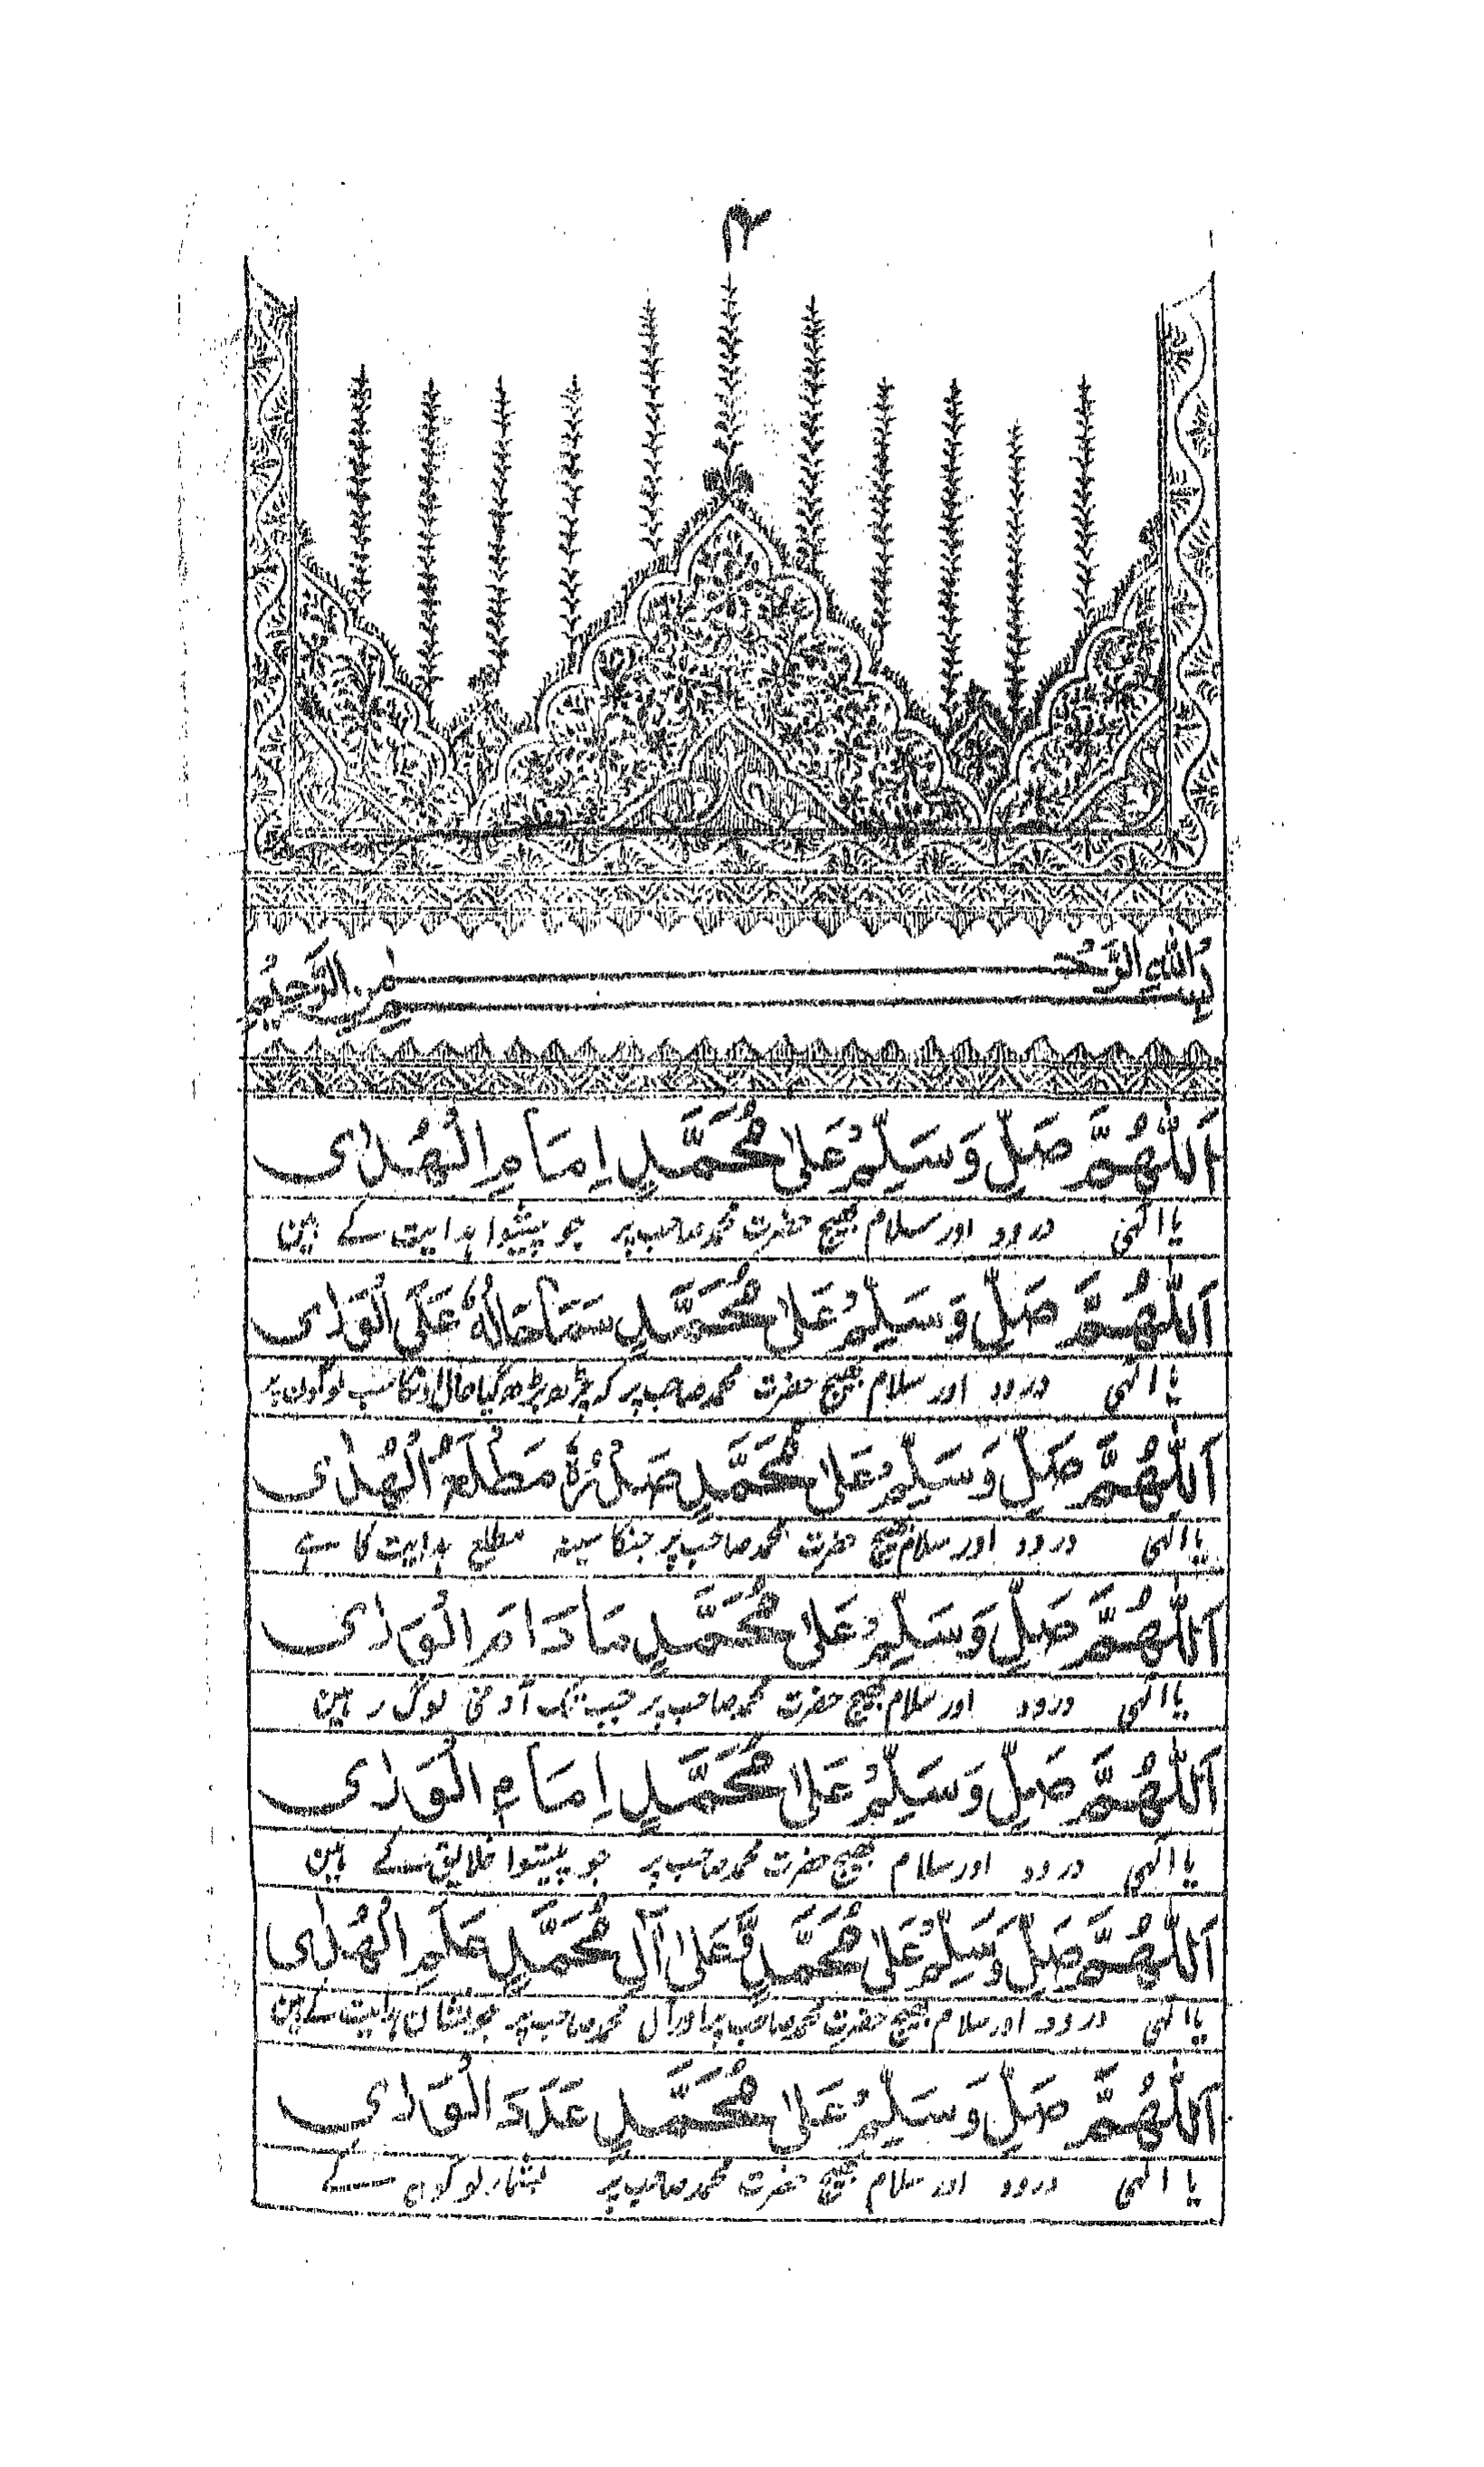 ۲
بِسْمِ اللّٰهِ الرَّحْمٰنِ الرَّحِيْمِ
اَللّٰهُمَّ صَلِّ وَسَلِّمْ عَلٰى مُحَمَّدٍ اِمَامِ الْهُدٰى
یا الٰہی درود اور سلام بھیج حضرت محمد صاحب پر جو پیشوا ہدایت کے ہین
اَللّٰهُمَّ صَلِّ وَسَلِّمْ عَلٰى مُحَمَّدٍ سَمَا حَالُهٗ عَلَى الْوَرٰى
یا الٰہی درود اور سلام بھیج حضرت محمد صاحب پر کہ چڑھ بڑھ گیا حال اونکا سب لوگون پر
اَللّٰهُمَّ صَلِّ وَسَلِّمْ عَلٰى مُحَمَّدٍ صَدْرُهٗ مَطْلَعُ الْهُدٰى
یا الٰہی درود اور سلام بھیج حضرت محمد صاحب پر جنکا سینہ مطلع ہدایت کا ہے
اَللّٰهُمَّ صَلِّ وَسَلِّمْ عَلٰى مُحَمَّدٍ مَا دَامَ الْوَرٰى
یا الٰہی درود اور سلام بھیج حضرت محمد صاحب پر جب تک آدمی لوگ رہین
اَللّٰهُمَّ صَلِّ وَسَلِّمْ عَلٰى مُحَمَّدٍ اِمَامِ الْوَرٰى
یا الٰہی درود اور سلام بھیج حضرت محمد صاحب پر جو پیشوا خلایق کے ہین
اَللّٰهُمَّ صَلِّ وَسَلِّمْ عَلٰى مُحَمَّدٍ وَّعَلٰى آلِ مُحَمَّدٍ عَلَمِ الْهُدٰى
یا الٰہی درود اور سلام بھیج حضرت محمد صاحب پر اور آل محمد صاحب پر جو نشان ہدایت کے ہین
اَللّٰهُمَّ صَلِّ وَسَلِّمْ عَلٰى مُحَمَّدٍ عَدَدَ الْوَرٰى
یا الٰہی درود اور سلام بھیج حضرت محمد صاحب پر بشمار لوگون کے